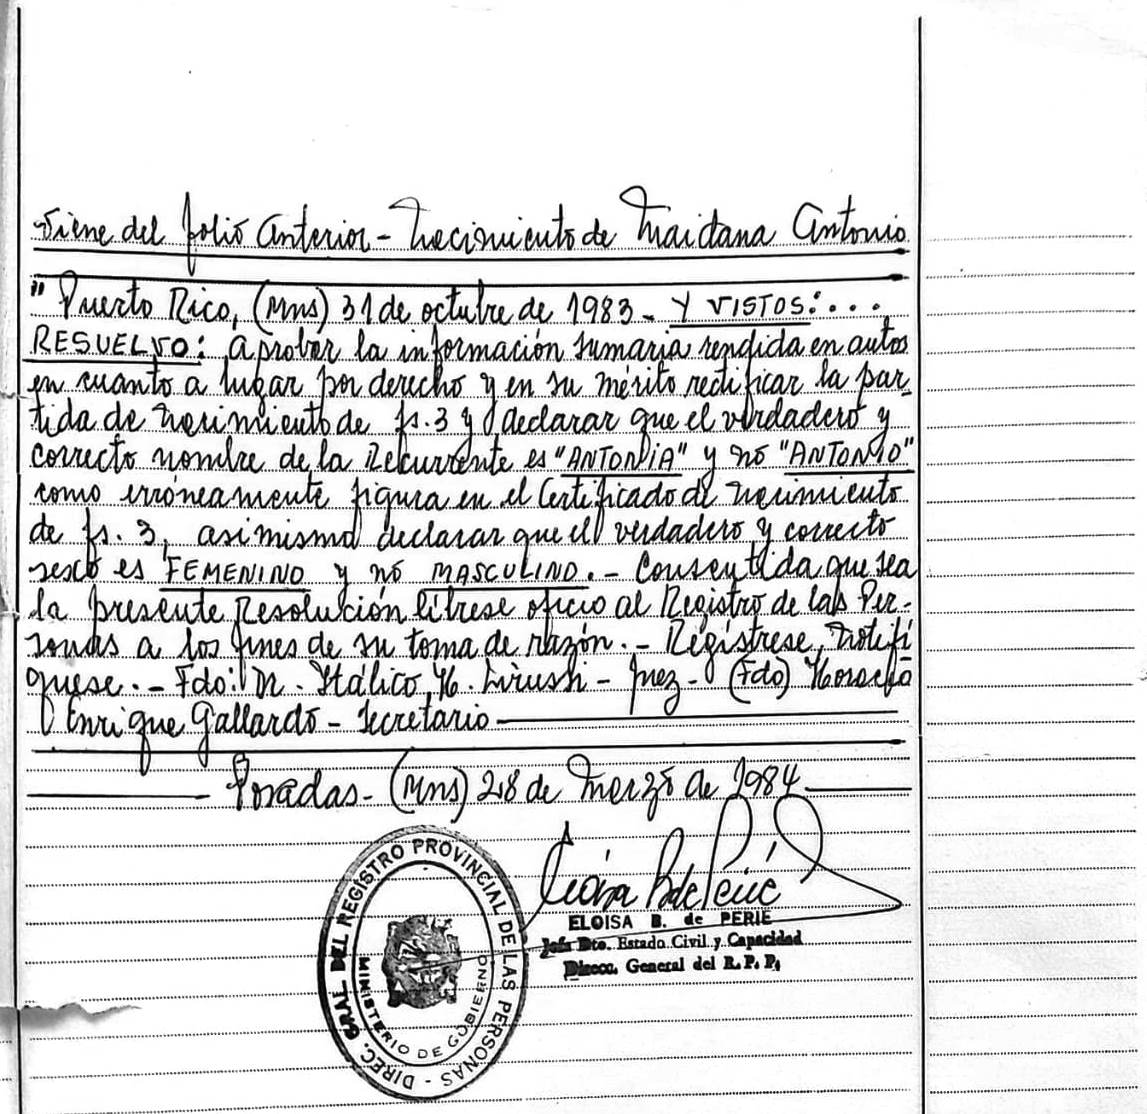 Viene del folio Anterior - Nacimiento de Maidana Antonio
" Puerto Rico, (Mns) 31 de octubre de 1983 - Y VISTOS: ...
RESUELVO: Aprobar la información sumaria rendida en autos
en cuanto a lugar por derecho y en su mérito rectificar la par-
tida de nacimiento de fs. 3 y declarar que el verdadero y
correcto nombre de la Recurrente es "ANTONIA" y no "ANTONIO"
como erróneamente figura en el Certificado de nacimiento
de fs. 3, asimismo declarar que el verdadero y correcto
sexo es FEMENINO y no MASCULINO. - Consentida que sea
la presente Resolución líbrese oficio al Registro de las Per-
sonas a los fines de su toma de razón. - Regístrese, Notifí
quese. - Fdo: Dr. Itálico H. - Juez - (Fdo) Horacio
Enrique Gallardo - Secretario
Posadas - (Mns) 28 de Marzo de 1984
ELOISA B. de PERIE
Jefa Dto. Estado Civil y Capacidad
Direcc. General del R. P. P.
DIREC. GRAL. DEL REGISTRO PROVINCIAL DE LAS PERSONAS -
MINISTERIO DE GOBIERNO